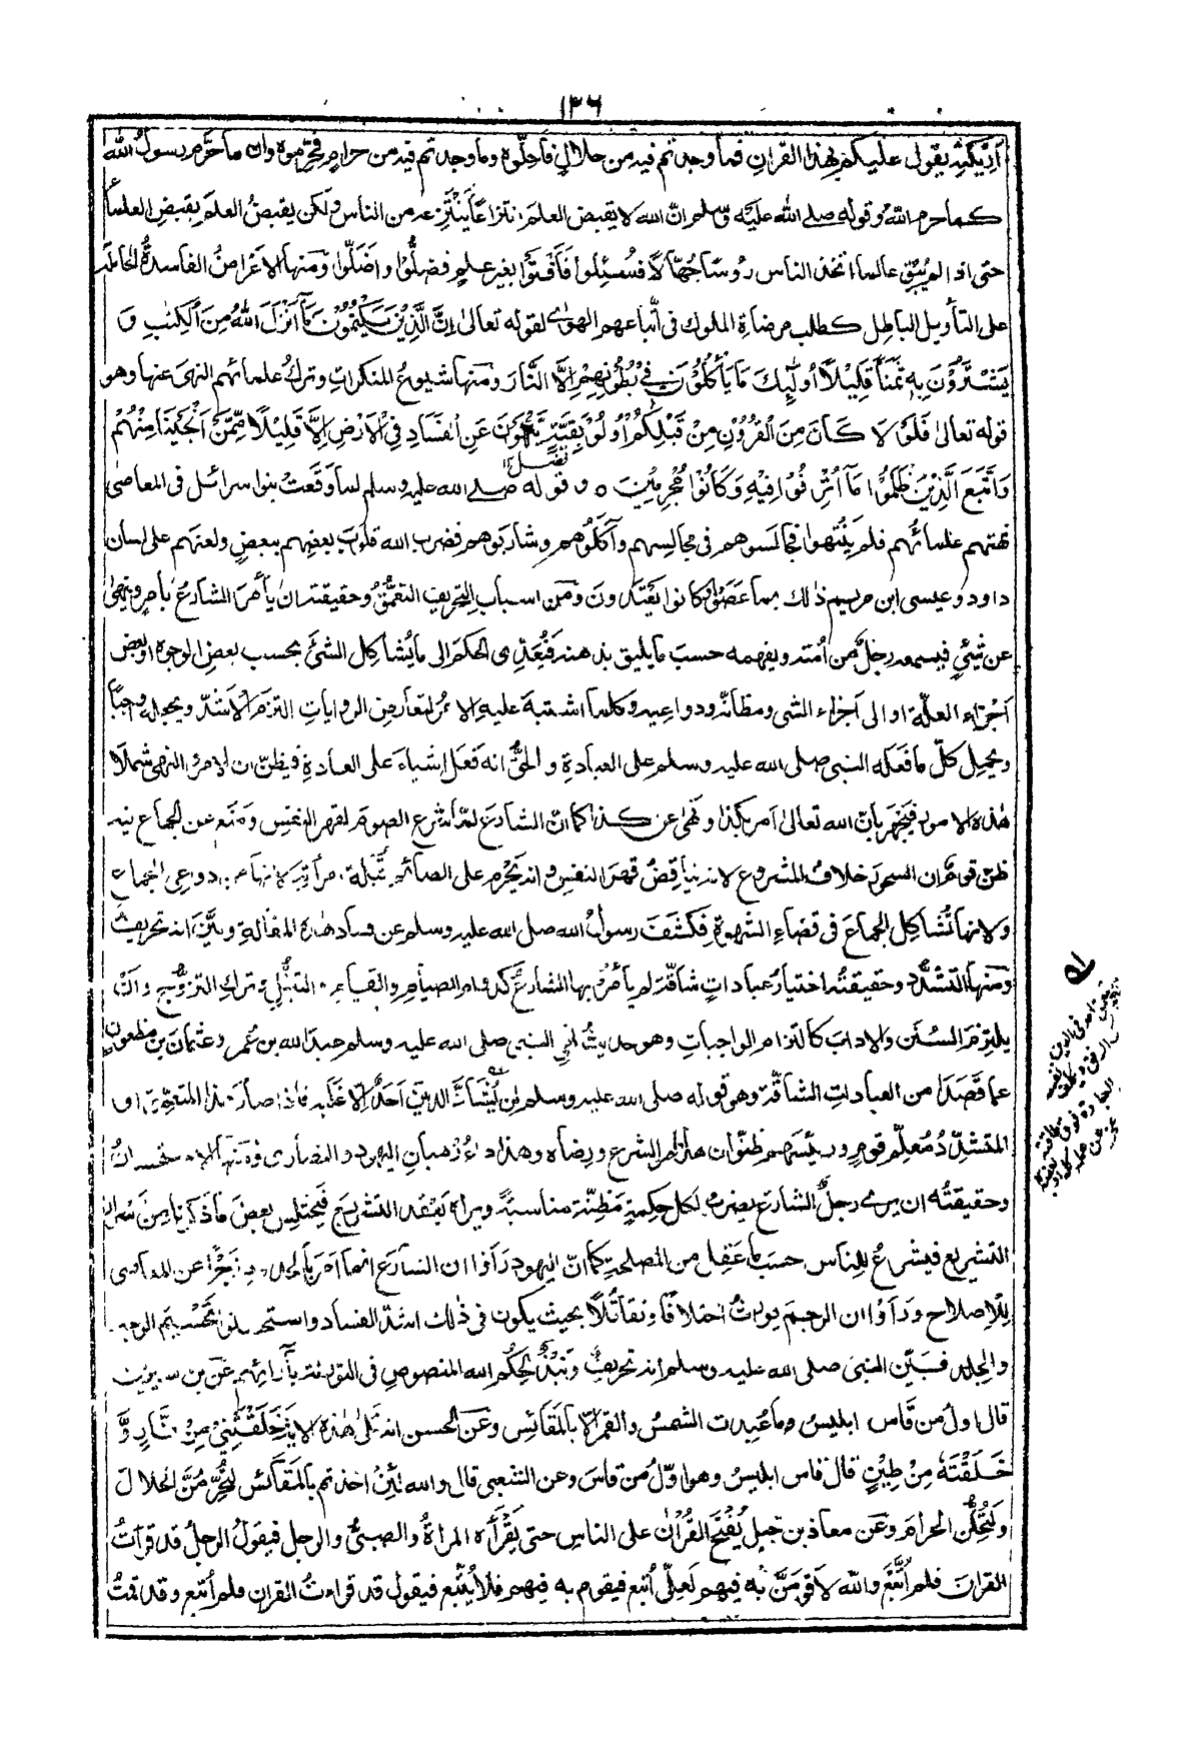 ١٣٦
اَرِيكَتِهٖ يقول عليكم بهٰذا القرانِ فما وجدتم فيه من حلالٍ فاَحِلّوه وما وجدتم فيه من حرامٍ فحَرِّموه وان ما حَرَّم رسولُ الله
كما حرم اللهُ وقولُه صلى الله عليه وسلم انّ الله لا يقبض العلمَ انتزاعًا ينتزِعه من الناس ولكن يقبضُ العلمَ بقبضِ العلماءِ
حتى اذا لم يُبْقِ عالما اتخذ الناس رُؤسًا جُهّالًا فسُئِلوا فَاَفتَوْا بغيرِ علمٍ فضلُّوا واضَلّوا ومنها الاغراضُ الفاسدةُ الحاملةُ
على التأويل الباطل كطلب مرضاةِ الملوك فى اتّباعهم الهوٰى لقوله تعالى اِنَّ الَّذِيْنَ يَكْتُمُوْنَ مَآ اَنْزَلَ اللهُ مِنَ الْكِتٰبِ وَ
يَشْتَرُوْنَ بِهٖ ثَمَنًا قَلِيْلًا اُولٰٓئِكَ مَا يَأْكُلُوْنَ فِيْ بُطُوْنِهِمْ اِلَّا النَّارَ ومنها شيوعُ المنكراتِ وتركُ علمائهم النهىَ عنها وهو
قوله تعالى فَلَوْ لَا كَانَ مِنَ الْقُرُوْنِ مِنْ قَبْلِكُمْ اُولُوْ بَقِيَّةٍ يَنْهَوْنَ عَنِ الْفَسَادِ فِى الْاَرْضِ اِلَّا قَلِيْلًا مِّمَّنْ اَنْجَيْنَا مِنْهُمْ
وَاتَّبَعَ الَّذِيْنَ ظَلَمُوْا مَآ اُتْرِفُوْا فِيْهِ وَكَانُوْا مُجْرِمِيْنَ ٥ وقوله صلى الله عليه وسلم لما وَقَعَتْ بنو اسرائيل فى المعاصى
نهتهم علمائهم فلم ينتهوا فجالسوهم فى مجالسهم وآكلوهم وشاربوهم فضرب الله قلوب بعضِهم ببعضٍ ولعنهم على لسان
داود وعيسى ابن مريم ذٰلك بما عَصَوْا وكانوا يَعْتَدُونَ ومن اسباب التحريف التعمُّقُ وحقيقته ان يأمُرَ الشارعُ بأمرٍ وينهىٰ
عن شئٍ فيسمعه رجلٌ من اُمّته ويفهمه حسبَ ما يليق بذهنه فيُعَدِّى الحكمَ الى ما يُشاكِل الشئَ بحسب بعضِ الوجوه او بعض
اجزاء العلّة او الى اجزاء الشئ ومظانّه ودواعيه وكلما اشتبهَ عليهِ الامرُ لتعارضِ الرواياتِ التزم الاشدّ ويجعله واجبًا
ويحمل كلّ ما فَعَلَه النبى صلى الله عليه وسلم على العبادةِ والحقُّ انه فَعَلَ اشياءَ على العادةِ فيظنّ ان الامر والنهى شملا
هٰذه الامور فيَجْهَر بان الله تعالى امر بكذا ونهىٰ عن كذا كما انّ الشارعَ لمّا شرع الصومَ لقهرِ النفسِ ومَنَع عن الجماعِ فيه
ظنّ قومٌ ان السحورَ خلافُ المشروع لانه يناقضُ قهرَ النفسِ وانه يَحْرُم على الصائمِ قُبْلَةُ امرأتِه لانها من دواعى الجماع
ولانها تُشاكِل الجماعَ فى قضاءِ الشهوةِ فكَشَفَ رسولُ الله صلى الله عليه وسلم عن فسادِ هٰذه المقالةِ وبيَّنَ انه تحريفٌ
ومنها التشدُّد وحقيقتُه اختيارُ عباداتٍ شاقّةٍ لم يأمُرْ بها الشارعُ كدوام الصيامِ والقيامِ والتبتُّلِ وترك التزوُّجِ وأن
يلتزمَ السُنَن والاداب كالتزام الواجباتِ وهو حديثُ نهى النبى صلى الله عليه وسلم عبدَ الله بن عُمر وعثمانَ بن مظعونٍ
عما قَصَدَا من العباداتِ الشاقّة وهو قوله صلى الله عليه وسلم لن يُشادَّ الدينَ اَحدٌ الا غَلَبَه فاذا صارَ هٰذا المتعمّقُ او
المتشدِّدُ مُعلِّمَ قومٍ ورئيسَهم ظنّوا ان هٰذا امر الشرع ورضاه وهذا داءُ رُهبانِ اليهود والنصارى ومنها الاستحسانُ
وحقيقتُه ان يرى رجلٌ الشارعَ يضرب لكل حكمةٍ مَظِنّةً مناسبةً ويراه يَعْقِد التشريعَ فيختلِس بعضَ ما ذكرنا مِنْ اسرار
التشريع فيشرعُ للناس حسبَ ما عَقَل من المصلحةِ كما انّ اليهود رَأَوْا ان الشارعَ انما اَمَرَ بالحدود زَجْرًا عن المعاصى
لِلاِصلاح ورَأَوْا ان الرجمَ يورِثُ اختلافًا وتقاتُلًا بحيث يكون فى ذٰلك اشدّ الفساد واستحسنوا تَحْمِيمَ الوجهِ
والجلدَ فبَيّن النبىّ صلى الله عليه وسلم انه تحريفٌ ونَبْذٌ لِحُكم الله المنصوصِ فى التورٰةِ بآرائِهم عن بن سيرين
قال اولُ من قَاس ابليسُ وما عُبِدت الشمسُ والقمرُ الّا بالمقائيس وعنَ الحسن انه تلا هٰذه الاٰية خَلَقْتَنِيْ مِنْ نَّارٍ وَّ
خَلَقْتَهٗ مِنْ طِيْنٍ قال قاس ابليسُ وهو اوّلُ من قاسَ وعن الشعبى قال والله لئِنْ اخذتم بالمقائس لتُحَرِّمُنَّ الحلال
ولَتُحِلُّنّ الحرامَ وعَن معاذ بن جبلٍ يُفْتَحُ القُرْاٰن على الناس حتى يَقْرَأه المرأةُ والصبىُّ والرجل فيقولُ الرجلُ قد قرأتُ
القراٰنَ فلم اُتَّبَعْ والله لاَقومَنَّ به فيهم لَعلّى اُتَّبع فيقوم به فيهم فلا يُتَّبع فيقول قد قراءتُ القران فلم اُتّبع وقد قمتُ